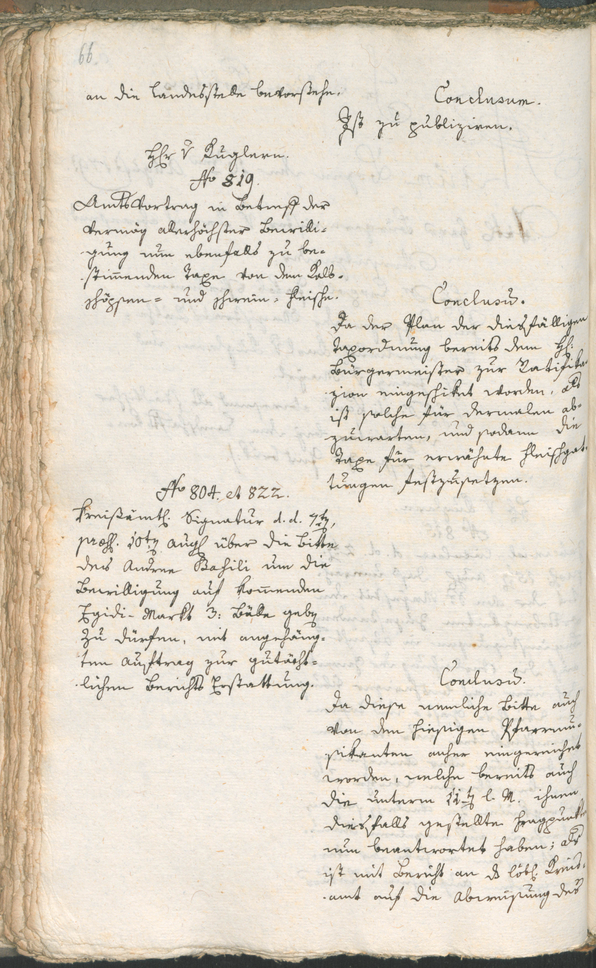 66.
an die Landesstelle bevorstehe.
Conclusum.
Ist zu publiziren.
Hr v Kuglern.
No 819.
Amts Vortrag in Betreff der
vermög allerhöchster Bewilli-
gung nun ebenfalls zu be-
stimmenden Taxe von dem Kalb-
schöpsen- und schwein-fleische.
Conclusum.
Da der Plan der diesfälligen
Taxordnung bereits dem Hr.
Bürgermeister zur Ratifika-
zion eingeschikt worden, als
ist solche für dermalen ab-
zuwarten, und sodann die
Taxe für erwähnte Fleischgat-
tungen festzusetzen.
No 804. et 822.
Kreisämtl. Signatur d. d. 7ten,
praes. 10ten Augs. über die Bitte
des Andree Bahili um die
Bewilligung auf kommenden
Egidi-Markt 3: Bälle geben
zu dürfen, mit angehäng-
ten Auftrag zur gutächt-
lichen Berichts Erstattung.
Conclusum.
Da diese nemliche Bitte auch
von dem hiesigen Pfarrmu-
sikanten anher eingereichet
worden, welche bereits auch
die unterm 11ten l. M. ihnen
diesfalls gestellte Fragpunkte
nun beantwortet haben; als
ist mit Bericht an das löbl. Kreis-
amt auf die Abweisung des